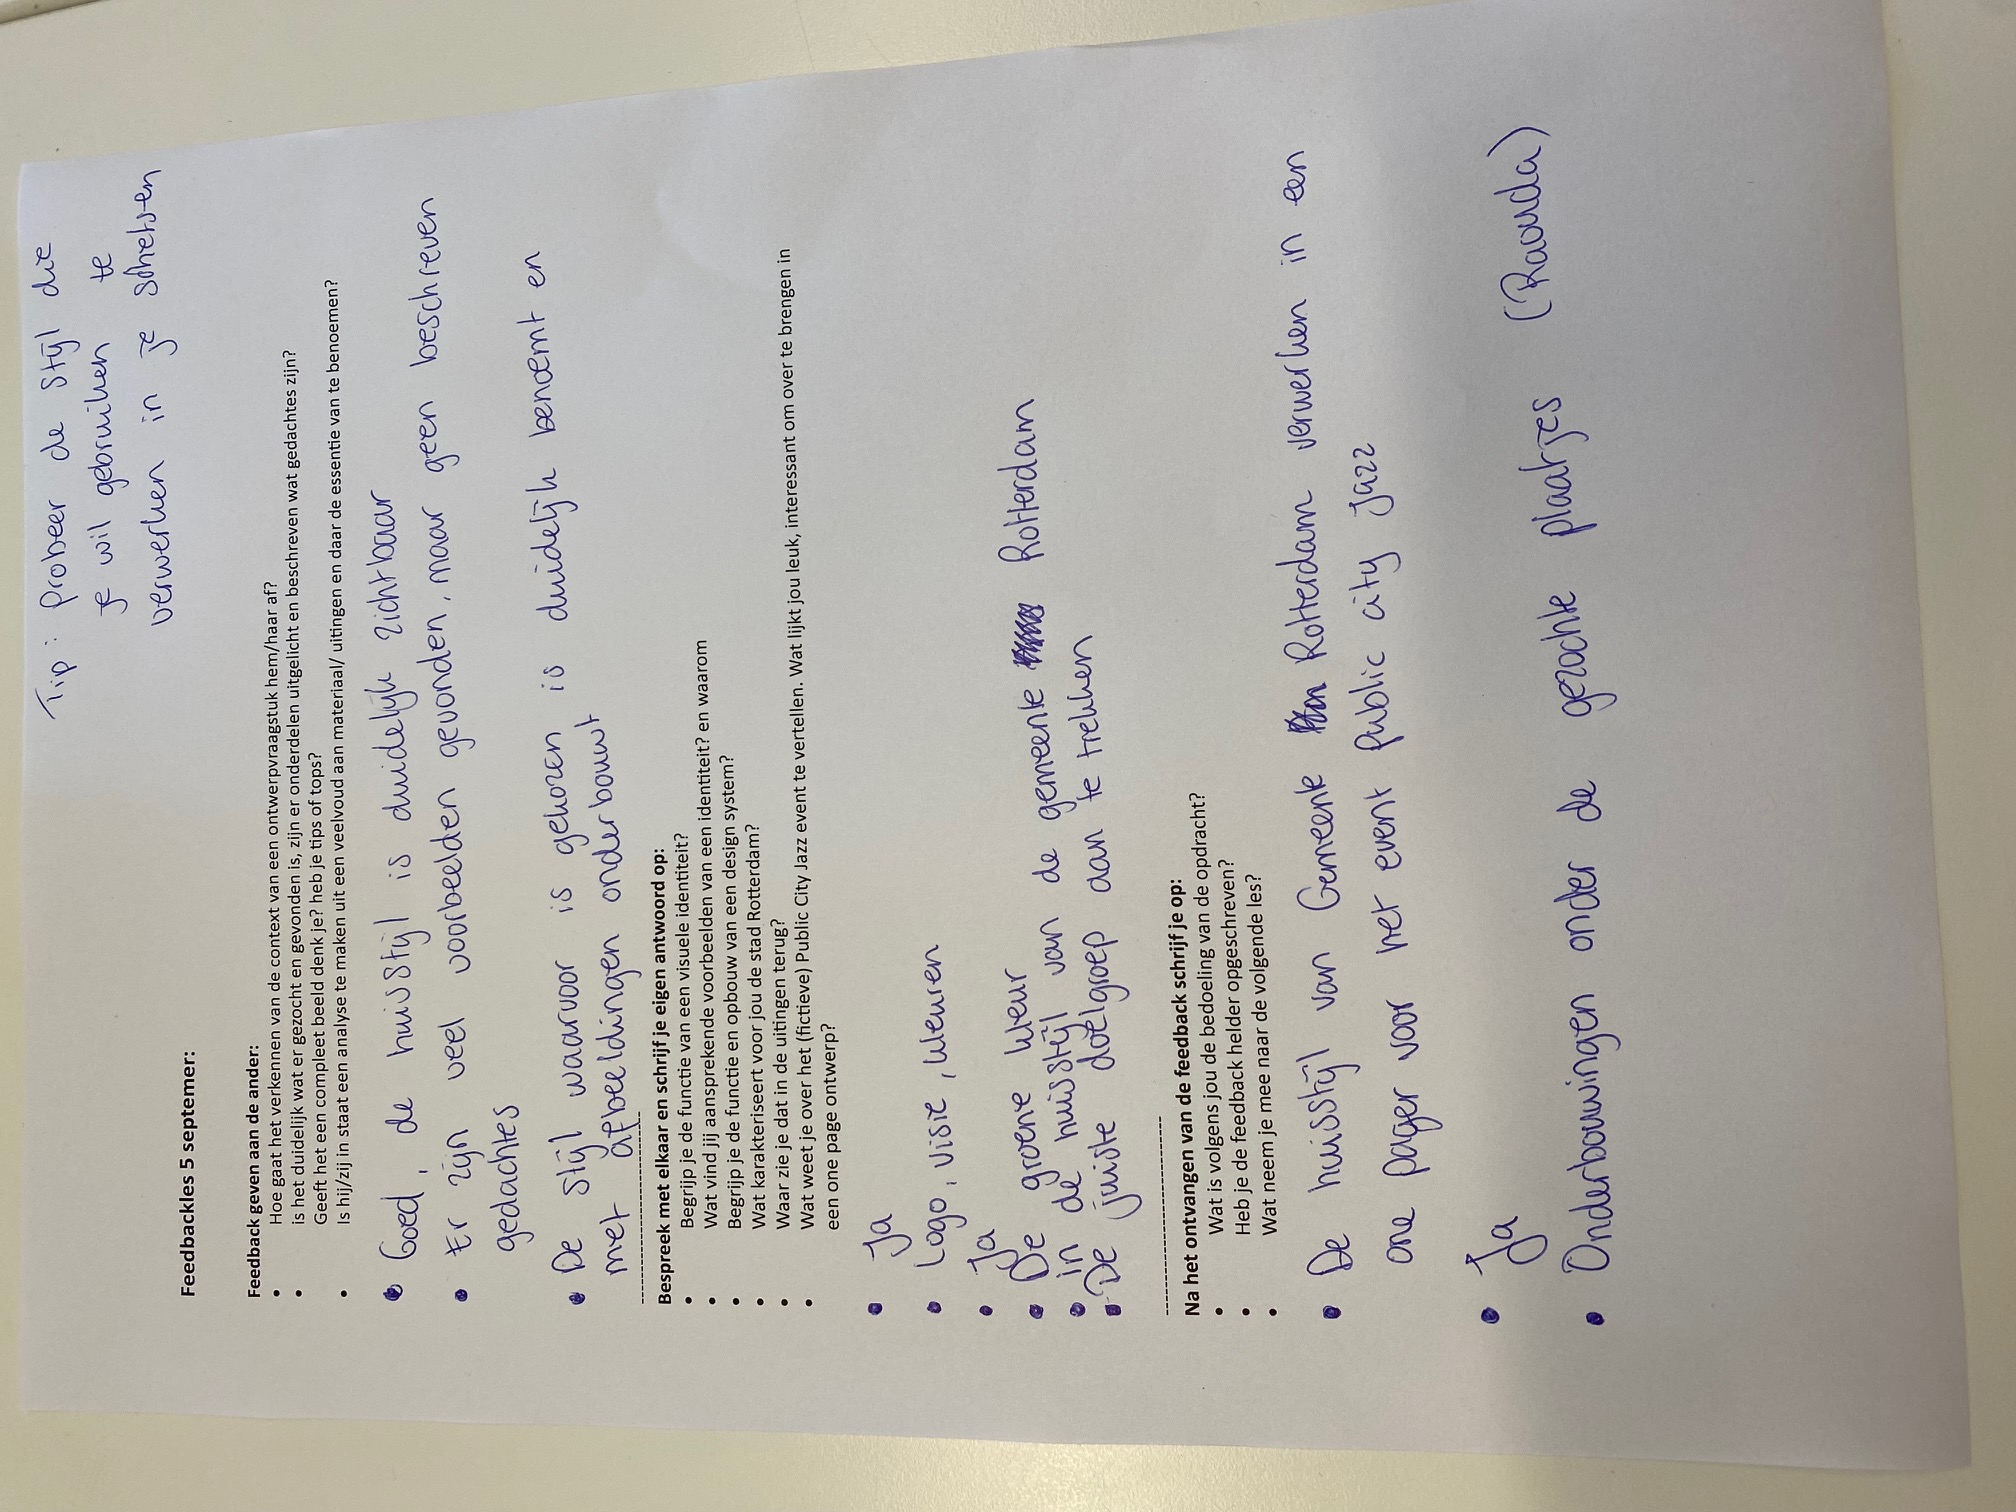 Tip: Probeer de stijl die
je wil gebruiken te
verwerken in je schetsen
Feedbackles 5 septemer:
Feedback geven aan de ander:
• Hoe gaat het verkennen van de context van een ontwerpvraagstuk hem/haar af?
• is het duidelijk wat er gezocht en gevonden is, zijn er onderdelen uitgelicht en beschreven wat gedachtes zijn?
Geeft het een compleet beeld denk je? heb je tips of tops?
• Is hij/zij in staat een analyse te maken uit een veelvoud aan materiaal/ uitingen en daar de essentie van te benoemen?
• Goed, de huisstijl is duidelijk zichtbaar
• Er zijn veel voorbeelden gevonden, maar geen beschreven
gedachtes
• De stijl waarvoor is gekozen is duidelijk benoemt en
met afbeeldingen onderbouwt
-----------------------------
Bespreek met elkaar en schrijf je eigen antwoord op:
• Begrijp je de functie van een visuele identiteit?
• Wat vind jij aansprekende voorbeelden van een identiteit? en waarom
• Begrijp je de functie en opbouw van een design system?
• Wat karakteriseert voor jou de stad Rotterdam?
• Waar zie je dat in de uitingen terug?
• Wat weet je over het (fictieve) Public City Jazz event te vertellen. Wat lijkt jou leuk, interessant om over te brengen in
een one page ontwerp?
• Ja
• Logo, visie, kleuren
• Ja
• De groene kleur
• in de huisstijl van de gemeente Rotterdam
• De juiste doelgroep aan te trekken
-----------------------------
Na het ontvangen van de feedback schrijf je op:
• Wat is volgens jou de bedoeling van de opdracht?
• Heb je de feedback helder opgeschreven?
• Wat neem je mee naar de volgende les?
• De huisstijl van Gemeente Rotterdam verwerken in een
one pager voor het event Public city Jazz
• Ja
• Onderbouwingen onder de gezochte plaatjes (Raouda)